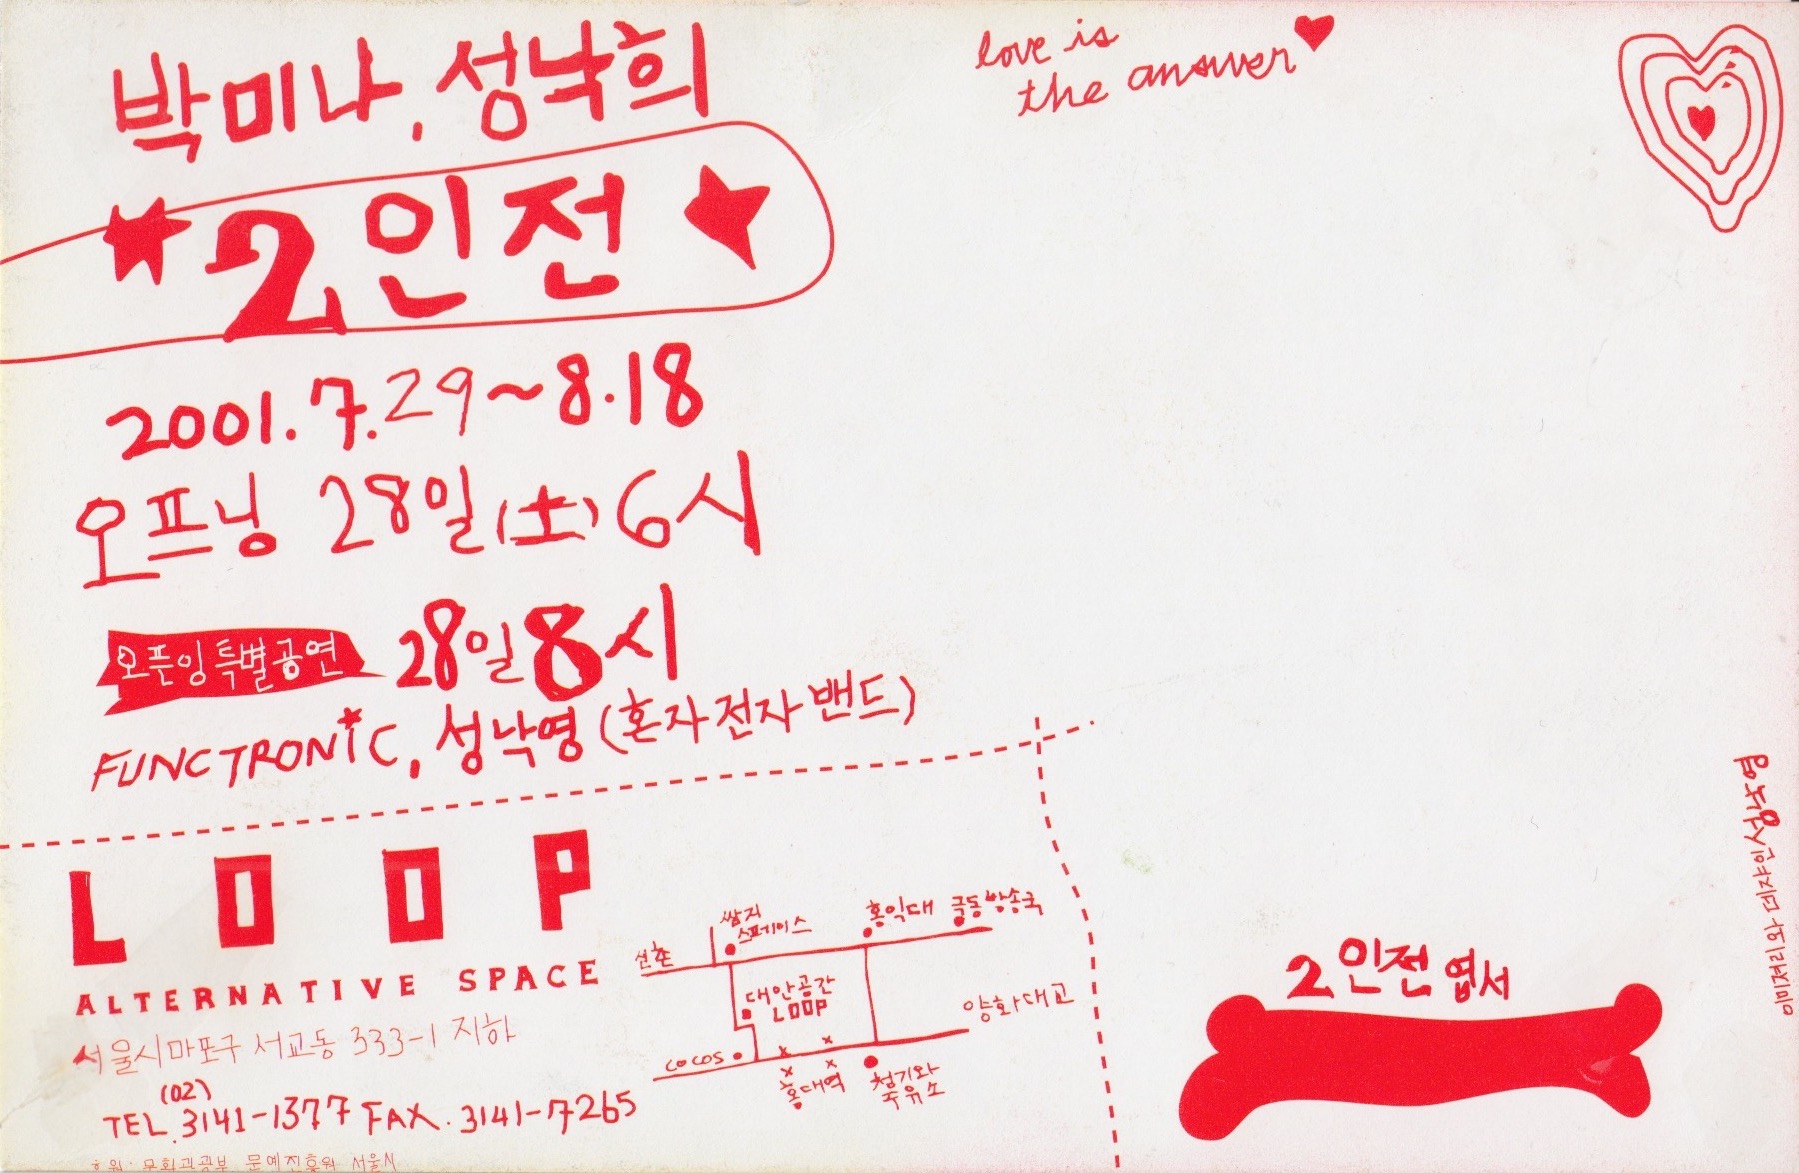 박미나, 성낙희
2인전
2001. 7. 29~8.18
오프닝 28일(土) 6시
오픈잉 특별공연 28일 8시
FUNCTRONIC, 성낙영 (혼자전자밴드)
LOOP
ALTERNATIVE SPACE
서울시마포구 서교동 333-1 지하
(02)
TEL. 3141-1377 FAX. 3141-7265
후원. 문화관광부 문예진흥원 서울시
love is
the answer
신촌
쌈지
스페이스
홍익대
극동방송국
대안공간
LOOP
양화대교
COCOS
홍대역
청기와
주유소
2인전 엽서